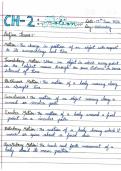 CH-2: Motion
Date: 17th June
Day: Wednesday
Define Terms:
Motion: The change in position of an object with respect
to its surroundings and time.
Translatory Motion: When an object in which every point
of the object moves through the same distance in same
interval of time.
Rectilinear Motion: The motion of a body moving along
a straight line.
Curvilinear: The motion of an object moving along a
curved or circular path.
Circular Motion: The motion of a body around a fixed
in a circular path.
Rotatory Motion: The motion of a body during which it
spins about a fixed axis.
Oscillatory Motion: The back and forth movement of a
body about its mean position.